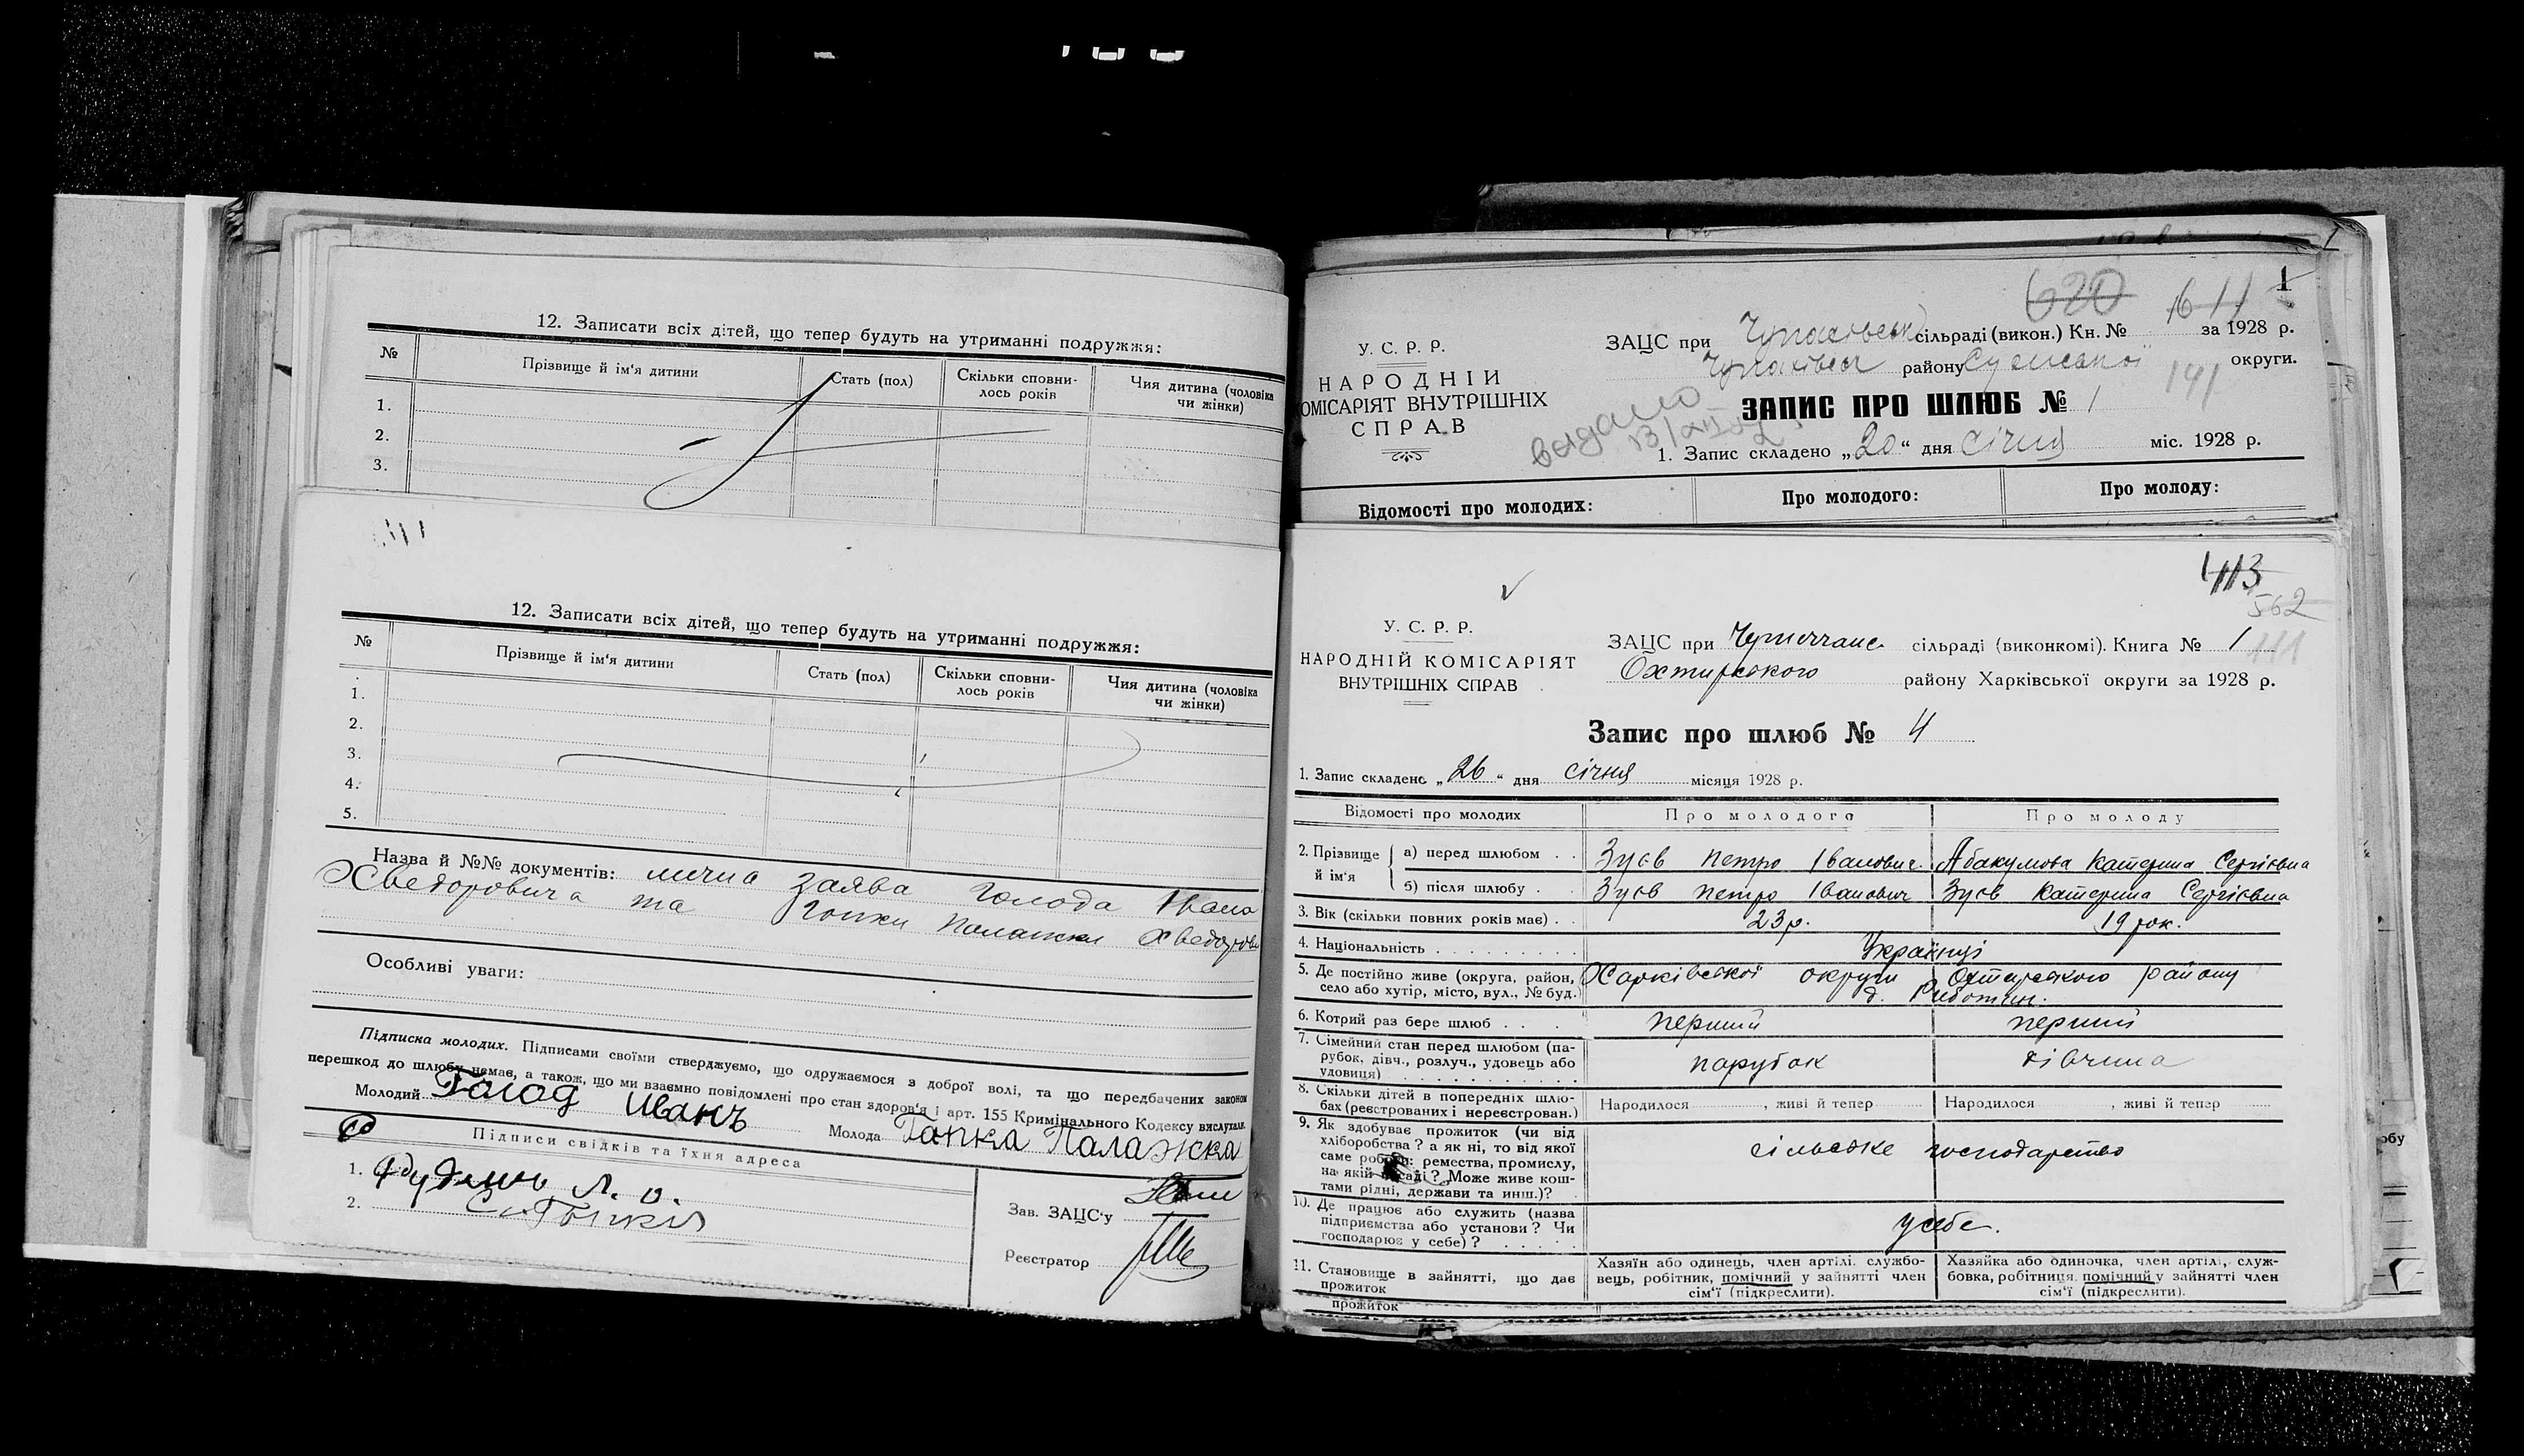 12. Записати всіх дітей, що тепер будуть на утриманні подружжя:
№ Прізвище й ім'я дитини Стать (пол) Скільки сповни-лось років Чия дитина (чоловіка чи жінки)
1.
2.
3.
12. Записати всіх дітей, що тепер будуть на утриманні подружжя:
№ Прізвище й ім'я дитини Стать (пол) Скільки сповни-лось років Чия дитина (чоловіка чи жінки)
1.
2.
3.
4.
5.
Назва й №№ документів: лична заява Голода Івана
Хведоровича та Гопки Палажки
Особливі уваги:
Підписка молодих. Підписами своїми стверджуємо, що одружаємося з доброї волі, та що передбачених законом
перешкод до шлюбу немає, а також, що ми взаємно повідомлені про стан здоров'я і арт. 155 Кримінального Кодексу вислухали.
Молодий Голод Иванъ Молода Гапка Палажка
Підписи свідків та їхня адреса
1.
2.
Зав. ЗАЦС'у
Реєстратор
620 1
У. С. Р. Р.
НАРОДНІЙ
КОМІСАРІЯТ ВНУТРІШНІХ
СПРАВ
ЗАЦС при Чупахівськ сільраді (викон.) Кн. № за 1928 р.
Чупахівськ району Сумської округи.
141
видано
ЗАПИС ПРО ШЛЮБ № 1
1. Запис складено „20“ дня січня міс. 1928 р.
Відомості про молодих: Про молодого: Про молоду:
413
562
У. С. Р. Р.
НАРОДНІЙ КОМІСАРІЯТ
ВНУТРІШНІХ СПРАВ
ЗАЦС при сільраді (виконкомі). Книга № 1
111
Охтирського району Харківської округи за 1928 р.
Запис про шлюб № 4
1. Запис складено „26“ дня січня місяця 1928 р.
Відомості про молодих Про молодого Про молоду
2. Прізвище й ім'я
а) перед шлюбом . . Зуєв Петро Іванович Абакумова Катерина Сергієвна
б) після шлюбу . Зуєв Петро Іванович Зуєв Катерина Сергієвна
3. Вік (скільки повних років має) . . 23 р. 19 рок.
4. Національність . . . . . . . . . . Українці
5. Де постійно живе (округа, район, село або хутір, місто, вул., № буд.) Харківської округи Охтирського району
6. Котрий раз бере шлюб . . . перший перший
7. Сімейний стан перед шлюбом (па-
рубок, дівч., розлуч., удовець або
удовиця) . . . . . . . . . . . парубок дівчина
8. Скільки дітей в попередніх шлю-
бах (реєстрованих і нереєстрован.) Народилося , живі й тепер Народилося , живі й тепер
9. Як здобуває прожиток (чи від
хліборобства? а як ні, то від якої
саме роботи: ремества, промислу,
на якій посаді? Може живе кош-
тами рідні, держави та инш.)? сільське господарство
10. Де працює або служить (назва
підприємства або установи? Чи
господарює у себе)? . . . . . у себе.
11. Становище в зайнятті, що дає
прожиток
Хазяїн або одинець, член артілі. службо-
вець, робітник, помічний у зайнятті член
сім'ї (підкреслити).
Хазяйка або одиночка, член артілі, служ-
бовка, робітниця. помічний у зайнятті член
сім'ї (підкреслити).
прожиток